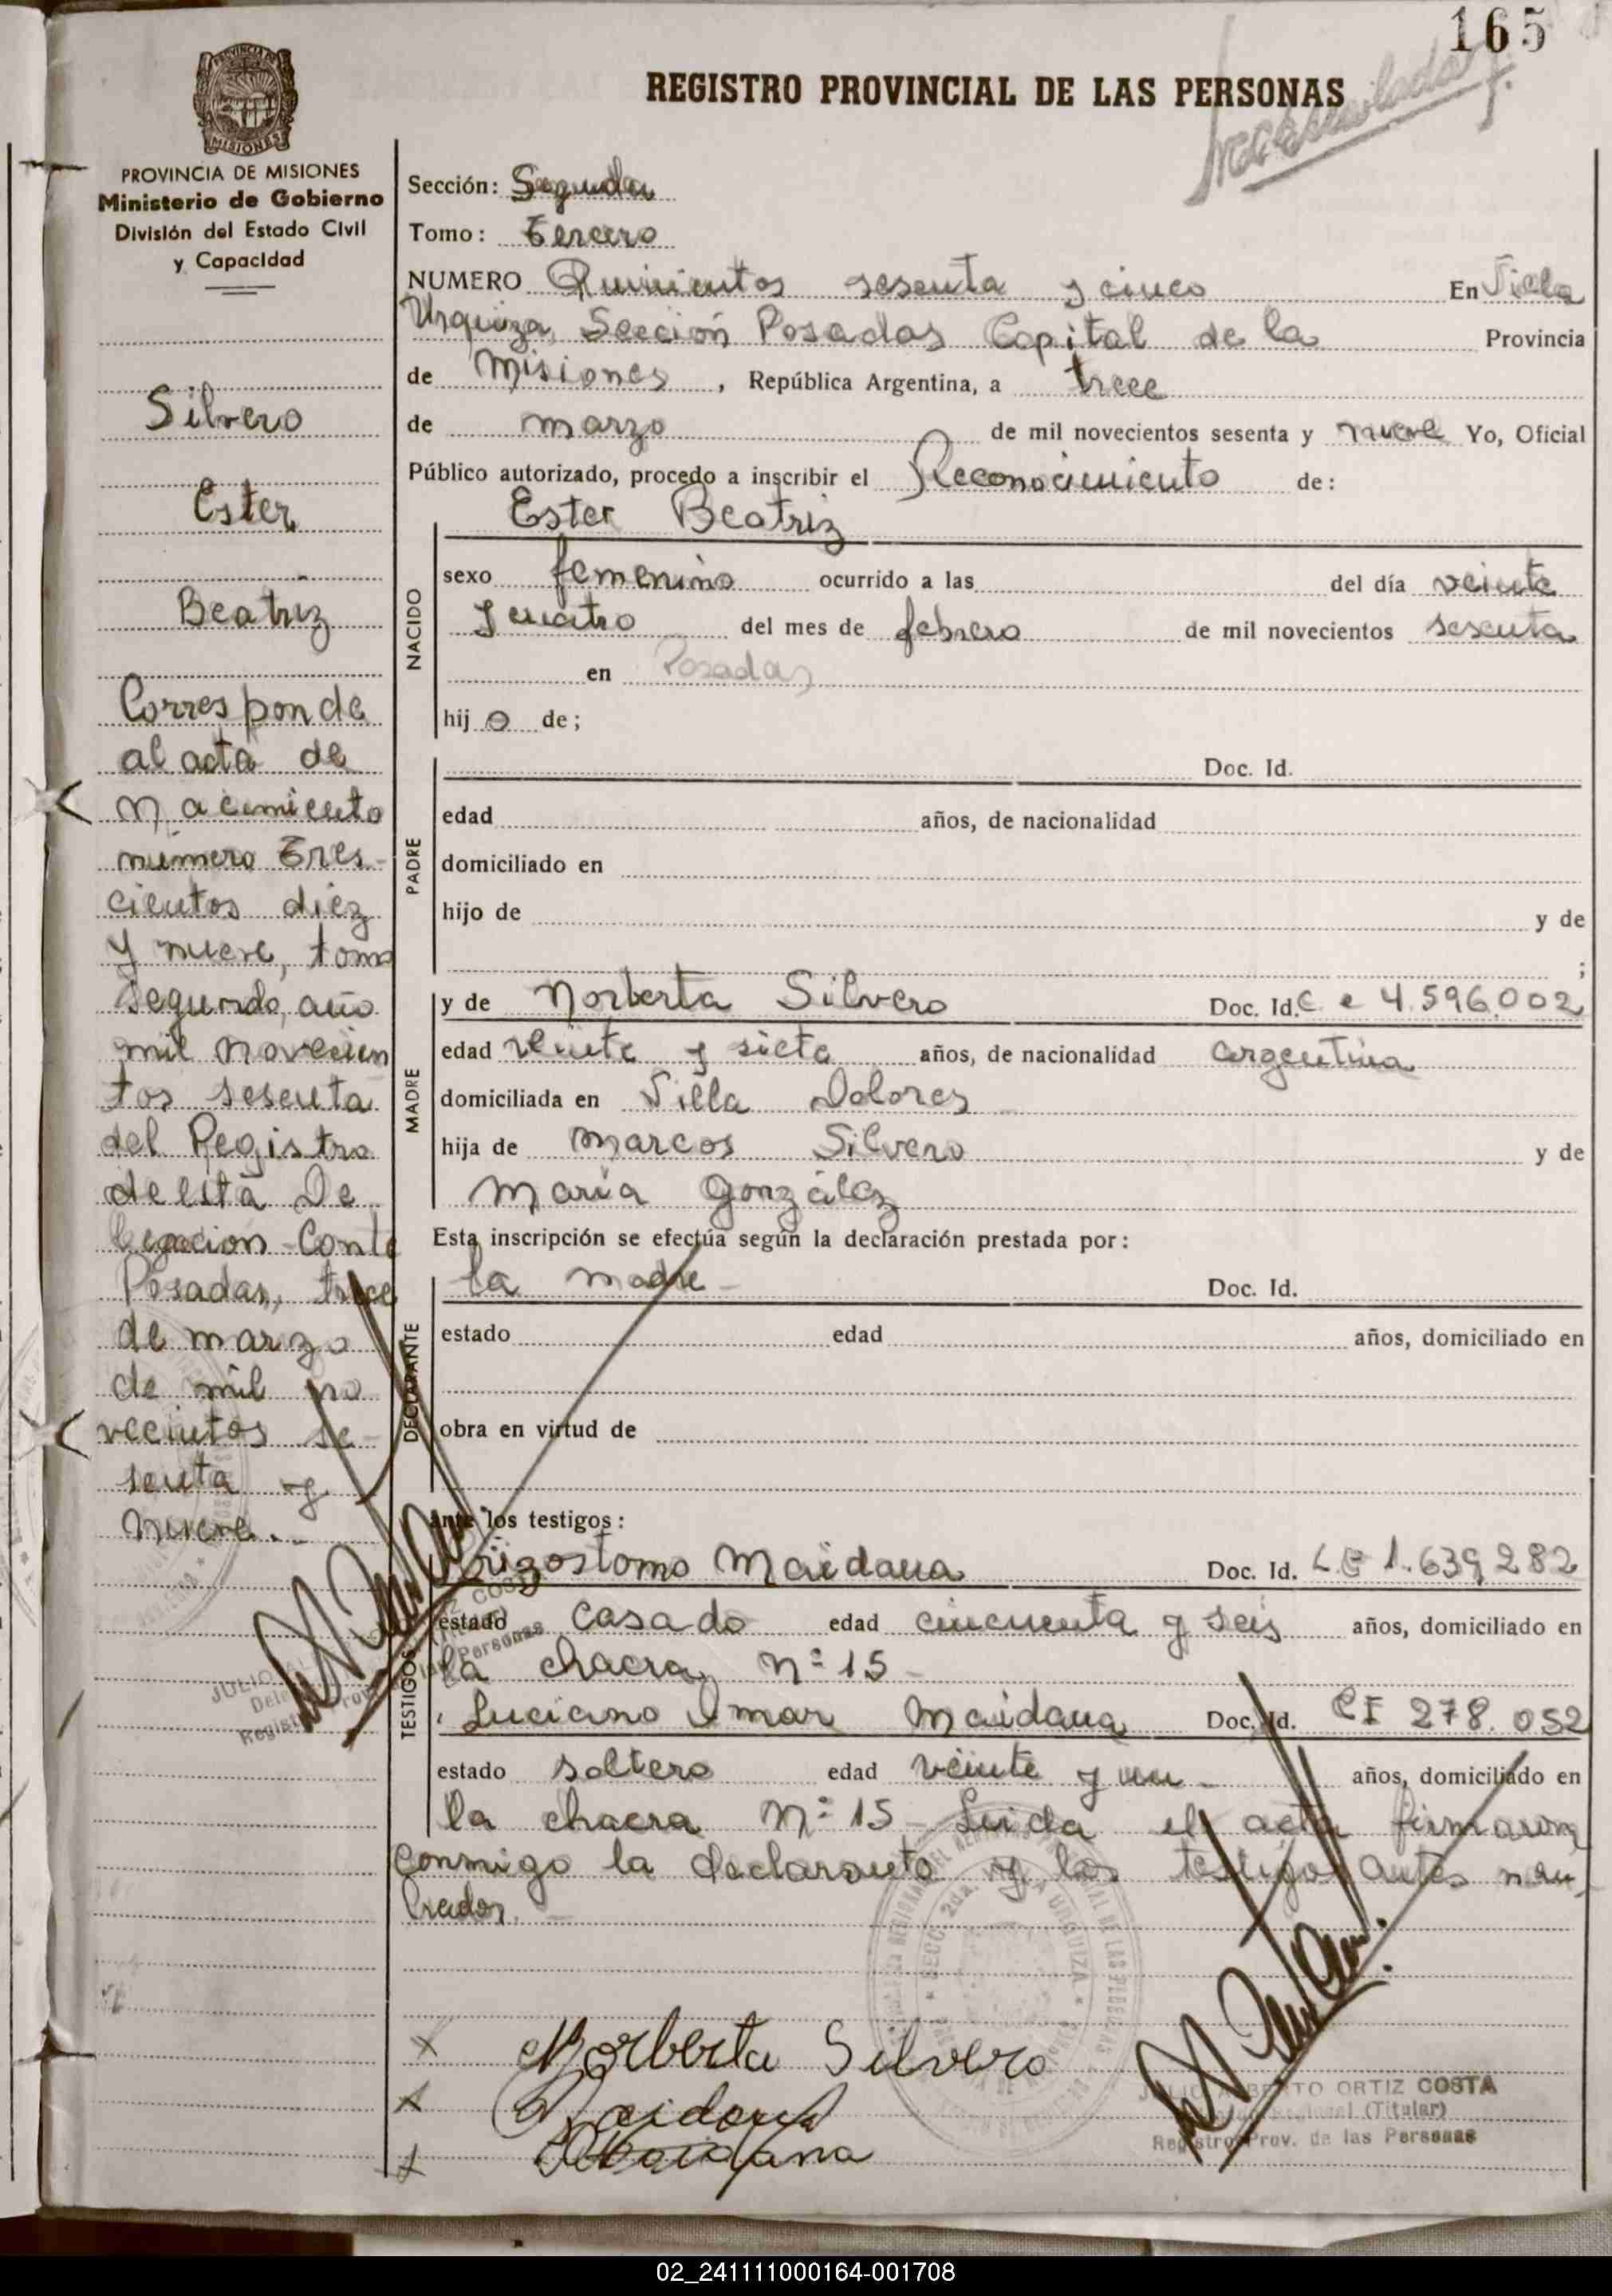 165
REGISTRO PROVINCIAL DE LAS PERSONAS
PROVINCIA DE MISIONES
Ministerio de Gobierno
División del Estado Civil
y Capacidad
Silvero
Ester
Beatriz
Corresponde
al acta de
nacimiento
número Tres-
cientos diez
y nueve, tomo
segundo, año
mil novecien
tos sesenta
del Registro
de esta De
legacion - Conte
Posadas, trece
de marzo
de mil no
vecientos se-
senta y
nueve.-
Sección: Segunda
Tomo: Tercero
NUMERO Quinientos sesenta y cinco En Villa
Urquiza, Sección Posadas Capital de la Provincia
de Misiones, República Argentina, a trece
de marzo de mil novecientos sesenta y nueve Yo, Oficial
Público autorizado, procedo a inscribir el Reconocimiento de:
Ester Beatriz
NACIDO
sexo femenino ocurrido a las del día veinte
y cuatro del mes de febrero de mil novecientos sesenta
en Posadas
hijo de;
PADRE
Doc. Id.
edad años, de nacionalidad
domiciliado en
hijo de y de
;
MADRE
y de Norberta Silvero Doc. Id. C e 4.596.002
edad veinte y siete años, de nacionalidad argentina
domiciliada en Villa Dolores
hija de Marcos Silvero y de
María González
Esta inscripción se efectúa según la declaración prestada por:
DECLARANTE
la madre - Doc. Id.
estado edad años, domiciliado en
obra en virtud de
ante los testigos:
TESTIGOS
Crizostomo Maidana Doc. Id. LE 1.639.282
estado casado edad cincuenta y seis años, domiciliado en
la chacra nº 15 -
Luciano Omar Maidana Doc. Id. CI 278.052
estado soltero edad veinte y un - años, domiciliado en
la chacra nº 15 - Leida el acta firmaron
conmigo la declarante y los testigos antes nom-
brados. -
Norberta Silvero
Maidana
JULIO ALBERTO ORTIZ COSTA
(Titular)
Registro Prov. de las Personas
02_241111000164-001708